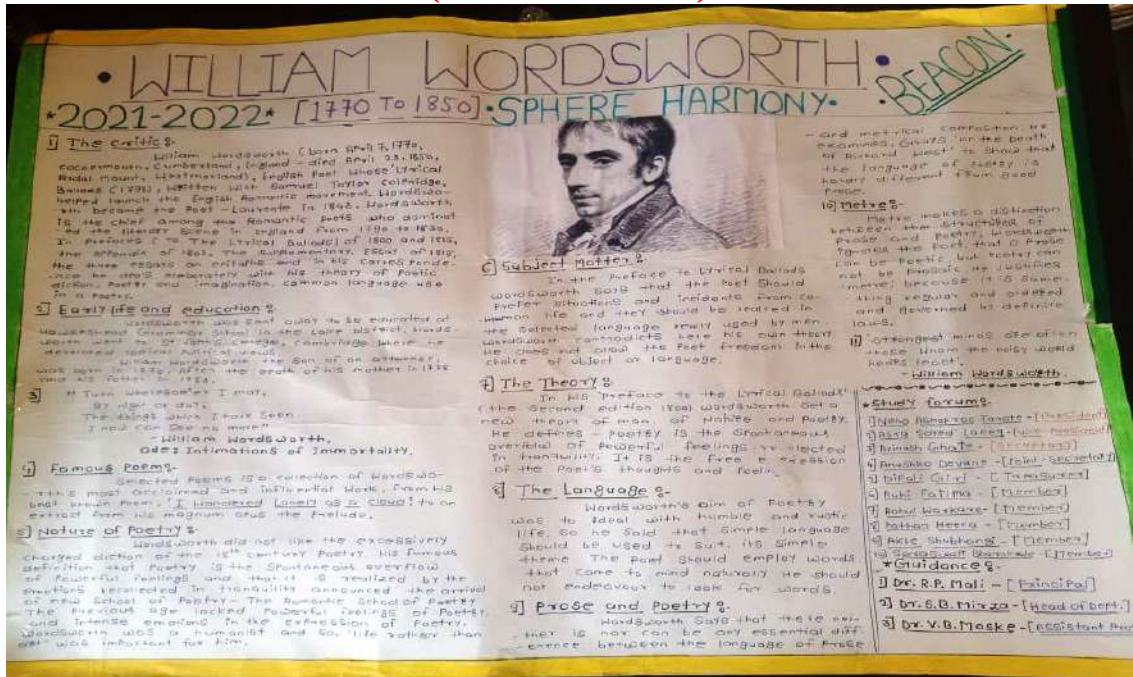 • WILLIAM WORDSWORTH •
*2021-2022* [1770 To 1850] • SPHERE HARMONY •
• BEACON •
1] The critic :-
William Wordsworth (born April 7, 1770,
Cockermouth, Cumberland, England - died April 23, 1850,
Rydal Mount, Westmorland), English Poet whose Lyrical
Ballads (1798), written with Samuel Taylor Coleridge,
helped launch the English Romantic movement. Wordswo-
rth became the Poet - Laureate in 1843. Wordsworth
is the chief among the Romantic Poets who dominat
-ed the literary scene in England from 1790 to 1830.
In Prefaces (To The Lyrical Ballads) of 1800 and 1815,
the appendix of 1802, The Supplementary Essay of 1815,
the three essays on epitaphs and in his Corresponde-
nce he deals elaborately with his theory of Poetic
diction, Poetry and imagination, common language use
in a Poetry.
2] Early life and education :-
Wordsworth was sent away to be educated at
Hawkeshead Grammar School in the Lake District. Words-
worth went to St John's College, Cambridge where he
developed radical Political views.
William Wordsworth, the Son of an attorney,
was born in 1770. After the death of his mother in 1778
and his father in
3] "Turn wheresoe'er I may,
By nigh or day,
The things which I have seen
I now can see no more"
- William Wordsworth,
Ode: Intimations of Immortality.
4] Famous Poems :-
Selected Poems is a collection of Wordswo-
-rth's most acclaimed and influential work, from his
best known Poem, 'I Wandered Lonely as a cloud', to an
extract from his magnum opus the Prelude.
5] Nature of Poetry :-
Wordsworth did not like the excessively
charged diction of the 18th century Poetry. His famous
definition that Poetry is the Spontaneous overflow
of Powerful feelings and that it is realized by the
emotions recollected in tranquility announced the arrival
of new School of Poetry - The Romantic School of Poetry.
The Previous age lacked Powerful feelings of Poetry.
and intense emotions in the expression of Poetry.
Wordsworth was a humanist and so, 'life rather than
art' was important for him.
6] Subject Matter :-
In the Preface to Lyrical Ballads
Wordsworth Says that the Poet Should
Prefer Situations and incidents from co-
mmon life and they should be related in
the selected language really used by men.
Wordsworth contradicts here his own theory
He does not allow the Poet freedom in the
choice of object or language.
7] The Theory :-
In his 'Preface to the Lyrical Ballads'
(the Second edition 1800) Wordsworth Set a
new theory of man of Nature and Poetry.
He defines - Poetry is the Spontaneous
overflow of Powerful feelings re ollected
in tranquility. It is the free e xression
of the Poet's thoughts and feelin.
8] The Language :-
Wordsworth's aim of Poetry
was to deal with humble and rustic
life. So he Said that simple language
Should be used to Suit. its Simple
theme. The Poet Should employ words
that came to mind naturally He should
not endeavour to look for words.
9] Prose and Poetry :-
Wordsworth Says that there nei-
-ther is nor can be any essential diff-
-erence between the language of Prose
- and metrical composition. He
examines, Gray's 'on the Death
of Richard West' to Show that
the language of Poetry is
hardly different from good
Prose.
10] Metre :-
Metre makes a distinction
between the structures of
Prose and Poetry. Wordsworth
ignores the fact that a Prose
can be Poetic but Poetry can
not be Prosaic. He Justifies
'metre' because it is Some-
thing regular and ordered
and governed by definite
laws.
11] Strongest minds are often
those whom the noisy world
hears least.
- William Wordsworth.
*Study forum:-
1] Neha - [President]
2] - [Vice President]
3] Avinash - [Secretary]
4] Anushka - [Joint - Secretary]
5] Dipali Giri - [Treasurer]
6] Ruhi Fatima - [Member]
7] Rahul - [Member]
8] Pathan Heena - [Member]
9] Akte Shubhangi - [Member]
10] - [Member]
*Guidance :-
1] Dr. R.P. Mali - [Principal]
2] Dr. S.B. Mirza - [Head of Dept.]
3] Dr. V.B. Moske - [Assistant